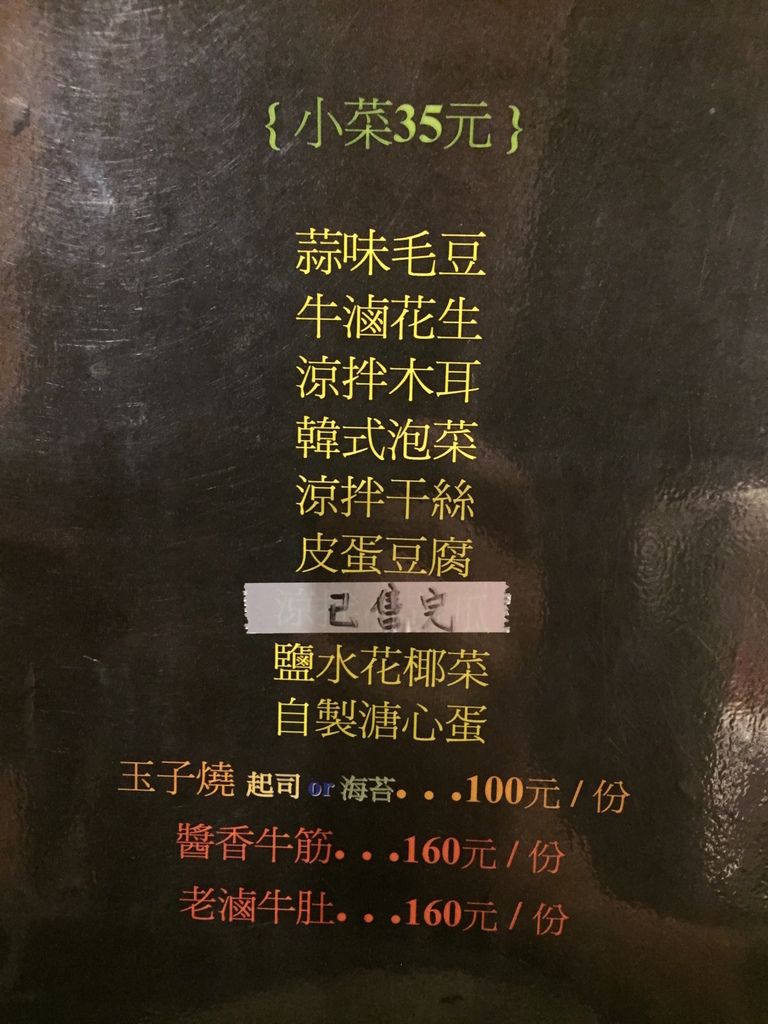 { 小菜35元 }
蒜味毛豆
牛滷花生
涼拌木耳
韓式泡菜
涼拌干絲
皮蛋豆腐
已售完
鹽水花椰菜
自製溏心蛋
玉子燒 起司 or 海苔...100元 / 份
醬香牛筋...160元 / 份
老滷牛肚...160元 / 份